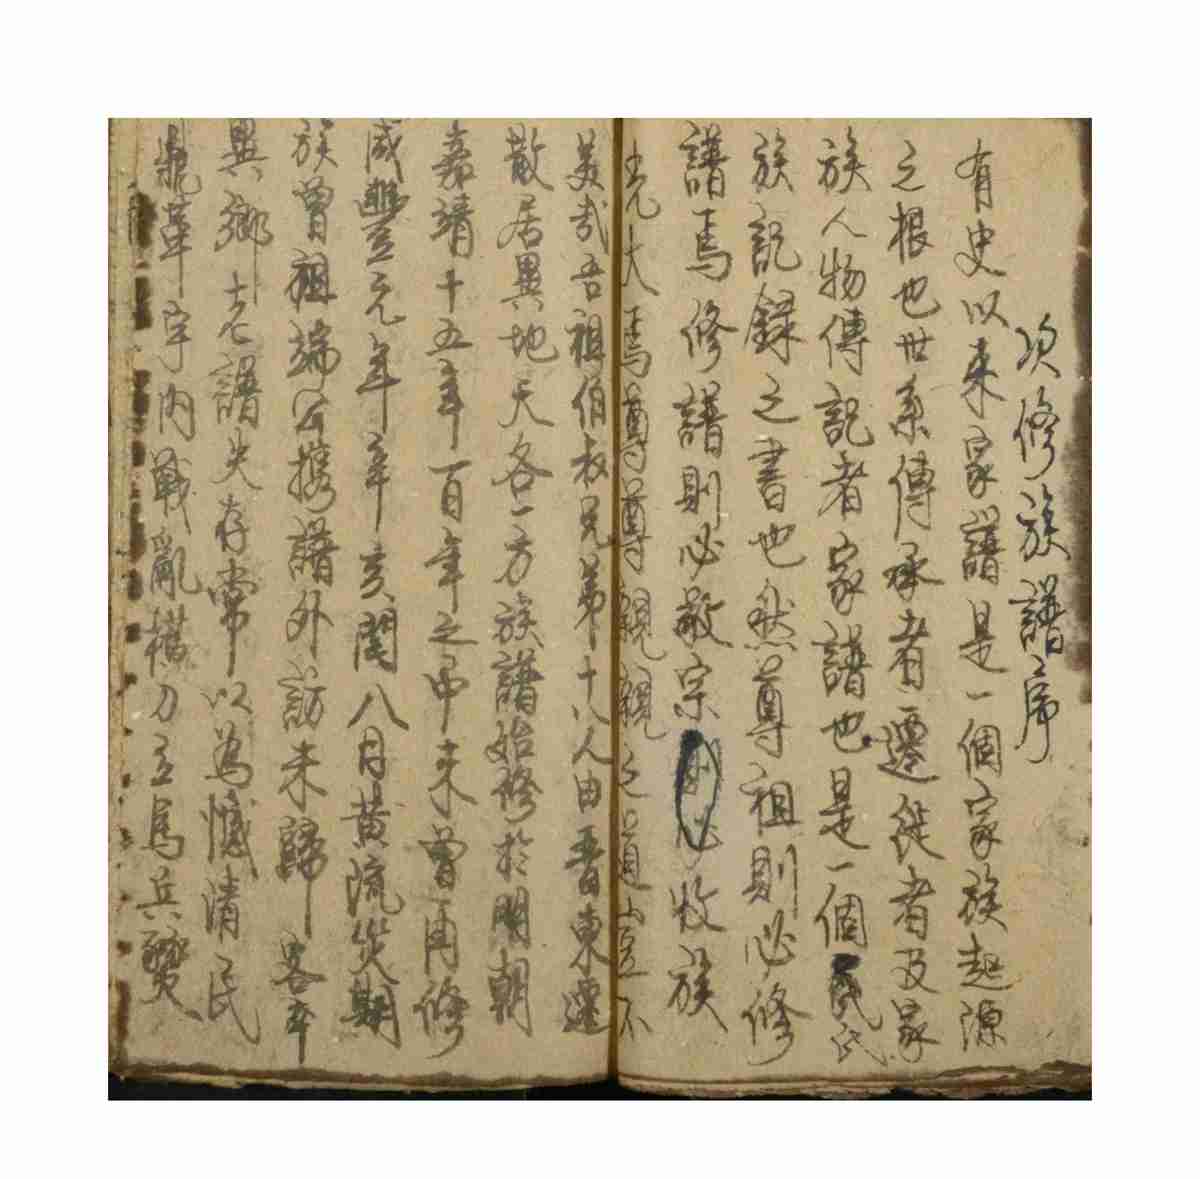 次修族譜序
有史以来家譜是一個家族起源
之根也世系傳承者遷徙者及家
族人物傳記者家譜也是一個民氏
族記録之書也然尊祖則必修
譜焉修譜則必敬宗牧族
光大焉尊尊親親之道豈不
美哉吾祖伯叔兄弟十八人由晋東遷
散居異地天各一方族譜始修於明朝
嘉靖十五年百年之中未曾再修
咸豐元年辛亥閏八月黄流災期
族曾祖端公携譜外訪未歸客卒
異鄉古老譜失存常以為憾清民
鼎革宇内戰亂横刀立馬兵燹